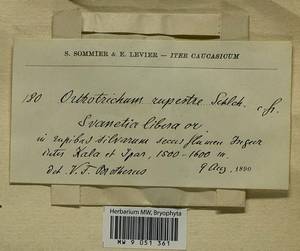 S. SOMMIER & E. LEVIER — ITER CAUCASICUM
130 Orthotrichum rupestre Schlch. c. fr.
Svanetia libera or
in rupibus silvarum secus flumen Ingur
inter Kala et Ipar, 1500-1600 m.
det. V. F. Brotherus 9 Aug. 1890
Herbarium MW, Bryophyta
MW 9 051 361